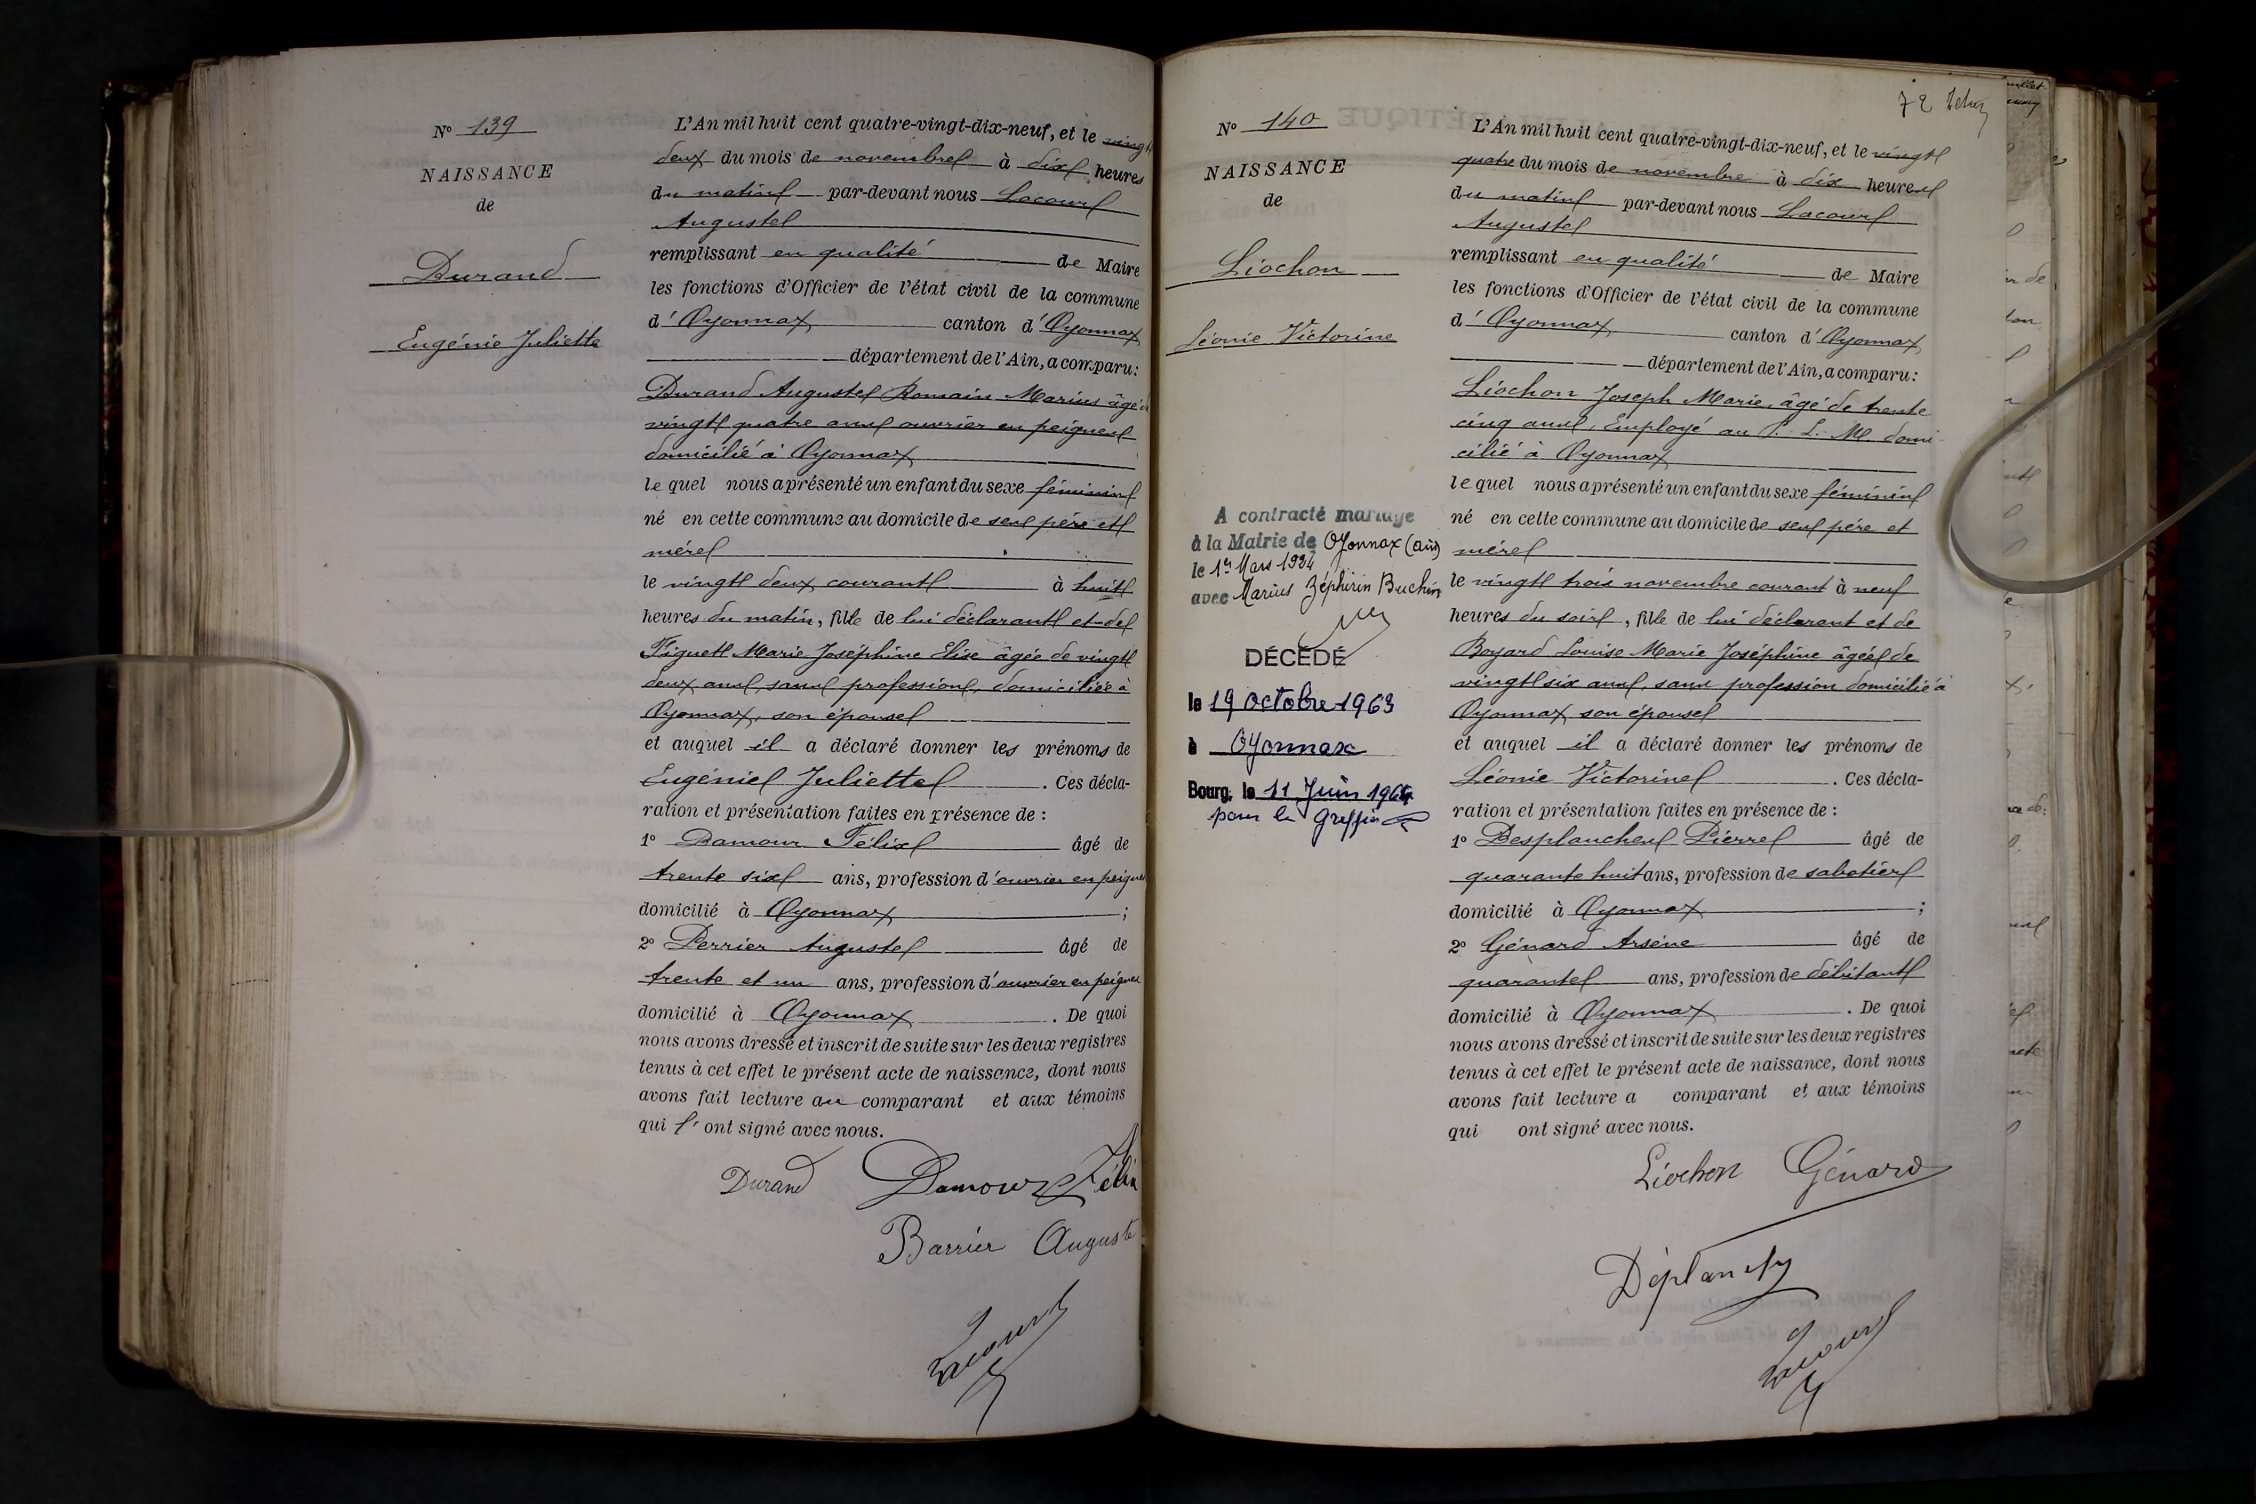 N° 139
NAISSANCE
de
Durand
Eugénie Juliette
L'An mil huit cent quatre-vingt-dix-neuf, et le vingt
deux du mois de novembre à dix heures
du matin par-devant nous Lacour
Auguste
remplissant en qualité de Maire
les fonctions d'Officier de l'état civil de la commune
d'Oyonnax canton d'Oyonnax
département de l'Ain, a comparu:
Durand Auguste Romain Marius âgé de
vingt quatre ans ouvrier en peignes
domicilié à Oyonnax
le quel nous a présenté un enfant du sexe féminin
né en cette commune au domicile de ses père et
mère
le vingt deux courant à huit
heures du matin, fille de lui déclarant et de
Figuet Marie Joséphine Elise âgée de vingt
deux ans, sans profession, domiciliée à
Oyonnax, son épouse
et auquel il a déclaré donner les prénoms de
Eugénie Juliette. Ces décla-
ration et présentation faites en présence de :
1° Damour Félix âgé de
trente six ans, profession d'ouvrier en peignes
domicilié à Oyonnax ;
2° Perrier Auguste âgé de
trente et un ans, profession d'ouvrier en peignes
domicilié à Oyonnax. De quoi
nous avons dressé et inscrit de suite sur les deux registres
tenus à cet effet le présent acte de naissance, dont nous
avons fait lecture au comparant et aux témoins
qui l'ont signé avec nous.
Durand Damour Félix
Barrier Auguste
Lacour
72
N° 140
NAISSANCE
de
Liochon
Léonie Victorine
A contracté mariage
à la Mairie de Oyonnax (Ain)
le 1er Mars 1934
avec Marius Zéphirin Buchin
DÉCÉDÉ
le 19 octobre 1963
à Oyonnax
Bourg, le 11 Juin 1964
pour le Greffier
L'An mil huit cent quatre-vingt-dix-neuf, et le vingt
quatre du mois de novembre à dix heures
du matin par-devant nous Lacour
Auguste
remplissant en qualité de Maire
les fonctions d'Officier de l'état civil de la commune
d'Oyonnax canton d'Oyonnax
département de l'Ain, a comparu:
Liochon Joseph Marie, âgé de trente
cinq ans, Employé au P. L. M. domi-
cilié à Oyonnax
le quel nous a présenté un enfant du sexe féminin
né en cette commune au domicile de ses père et
mère
le vingt trois novembre courant à neuf
heures du soir, fille de lui déclarant et de
Boyard Louise Marie Joséphine âgée de
vingt six ans, sans profession domicilié à
Oyonnax son épouse
et auquel il a déclaré donner les prénoms de
Léonie Victorine. Ces décla-
ration et présentation faites en présence de :
1° Desplanches Pierre âgé de
quarante huit ans, profession de sabotier
domicilié à Oyonnax ;
2° Génard Arsène âgé de
quarante ans, profession de débitant
domicilié à Oyonnax. De quoi
nous avons dressé et inscrit de suite sur les deux registres
tenus à cet effet le présent acte de naissance, dont nous
avons fait lecture a comparant et aux témoins
qui ont signé avec nous.
Liochon Génard
Lacour